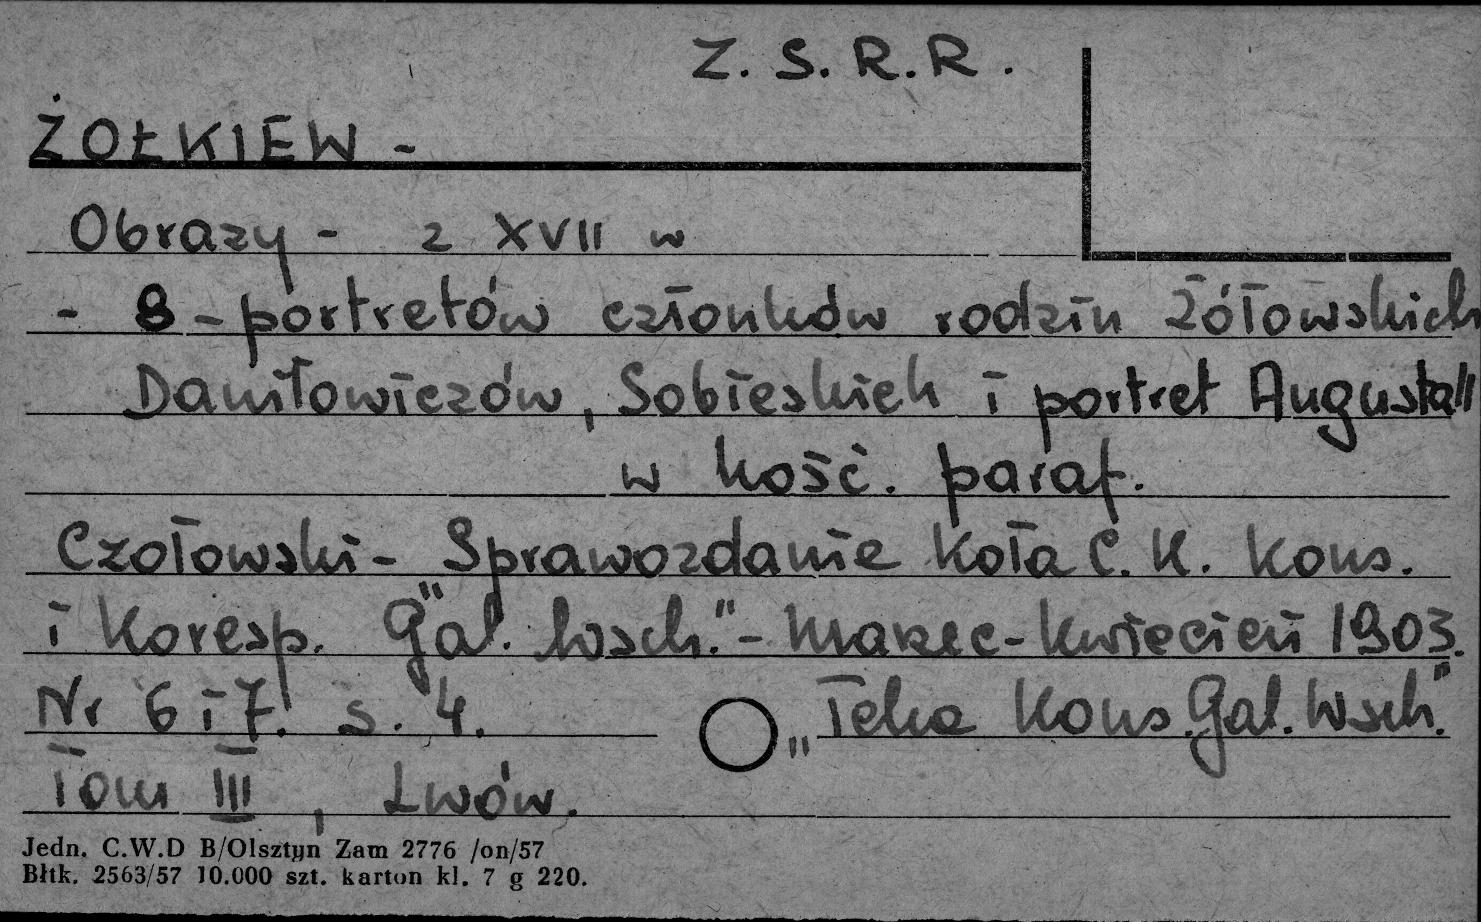 Z. S. R. R.
ŻOŁKIEW -
Obrazy - z XVII w
- 8 - portretów członków rodzin Żółowskich
Daniłowiczów, Sobieskich i portret Augusta II
w kość. paraf.
Czołowski - Sprawozdanie Koła C. K. Kons.
i Koresp. "Gal. Wsch." - Marzec - Kwiecień 1903.
Nr 6 i 7. s. 4. „Teka Kons. Gal. Wsch."
Tom III, Lwów.
Jedn. C.W.D B/Olsztyn Zam 2776 /on/57
Błtk. 2563/57 10.000 szt. karton kl. 7 g 220.